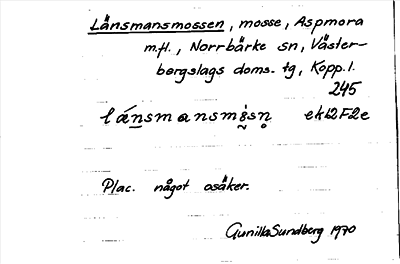 Länsmansmossen, mosse, Aspmora
m.fl., Norrbärke sn, Väster-
bergslags doms. tg, Kopp. l.
245
Plac. något osäker.
Gunilla Sundberg 1970